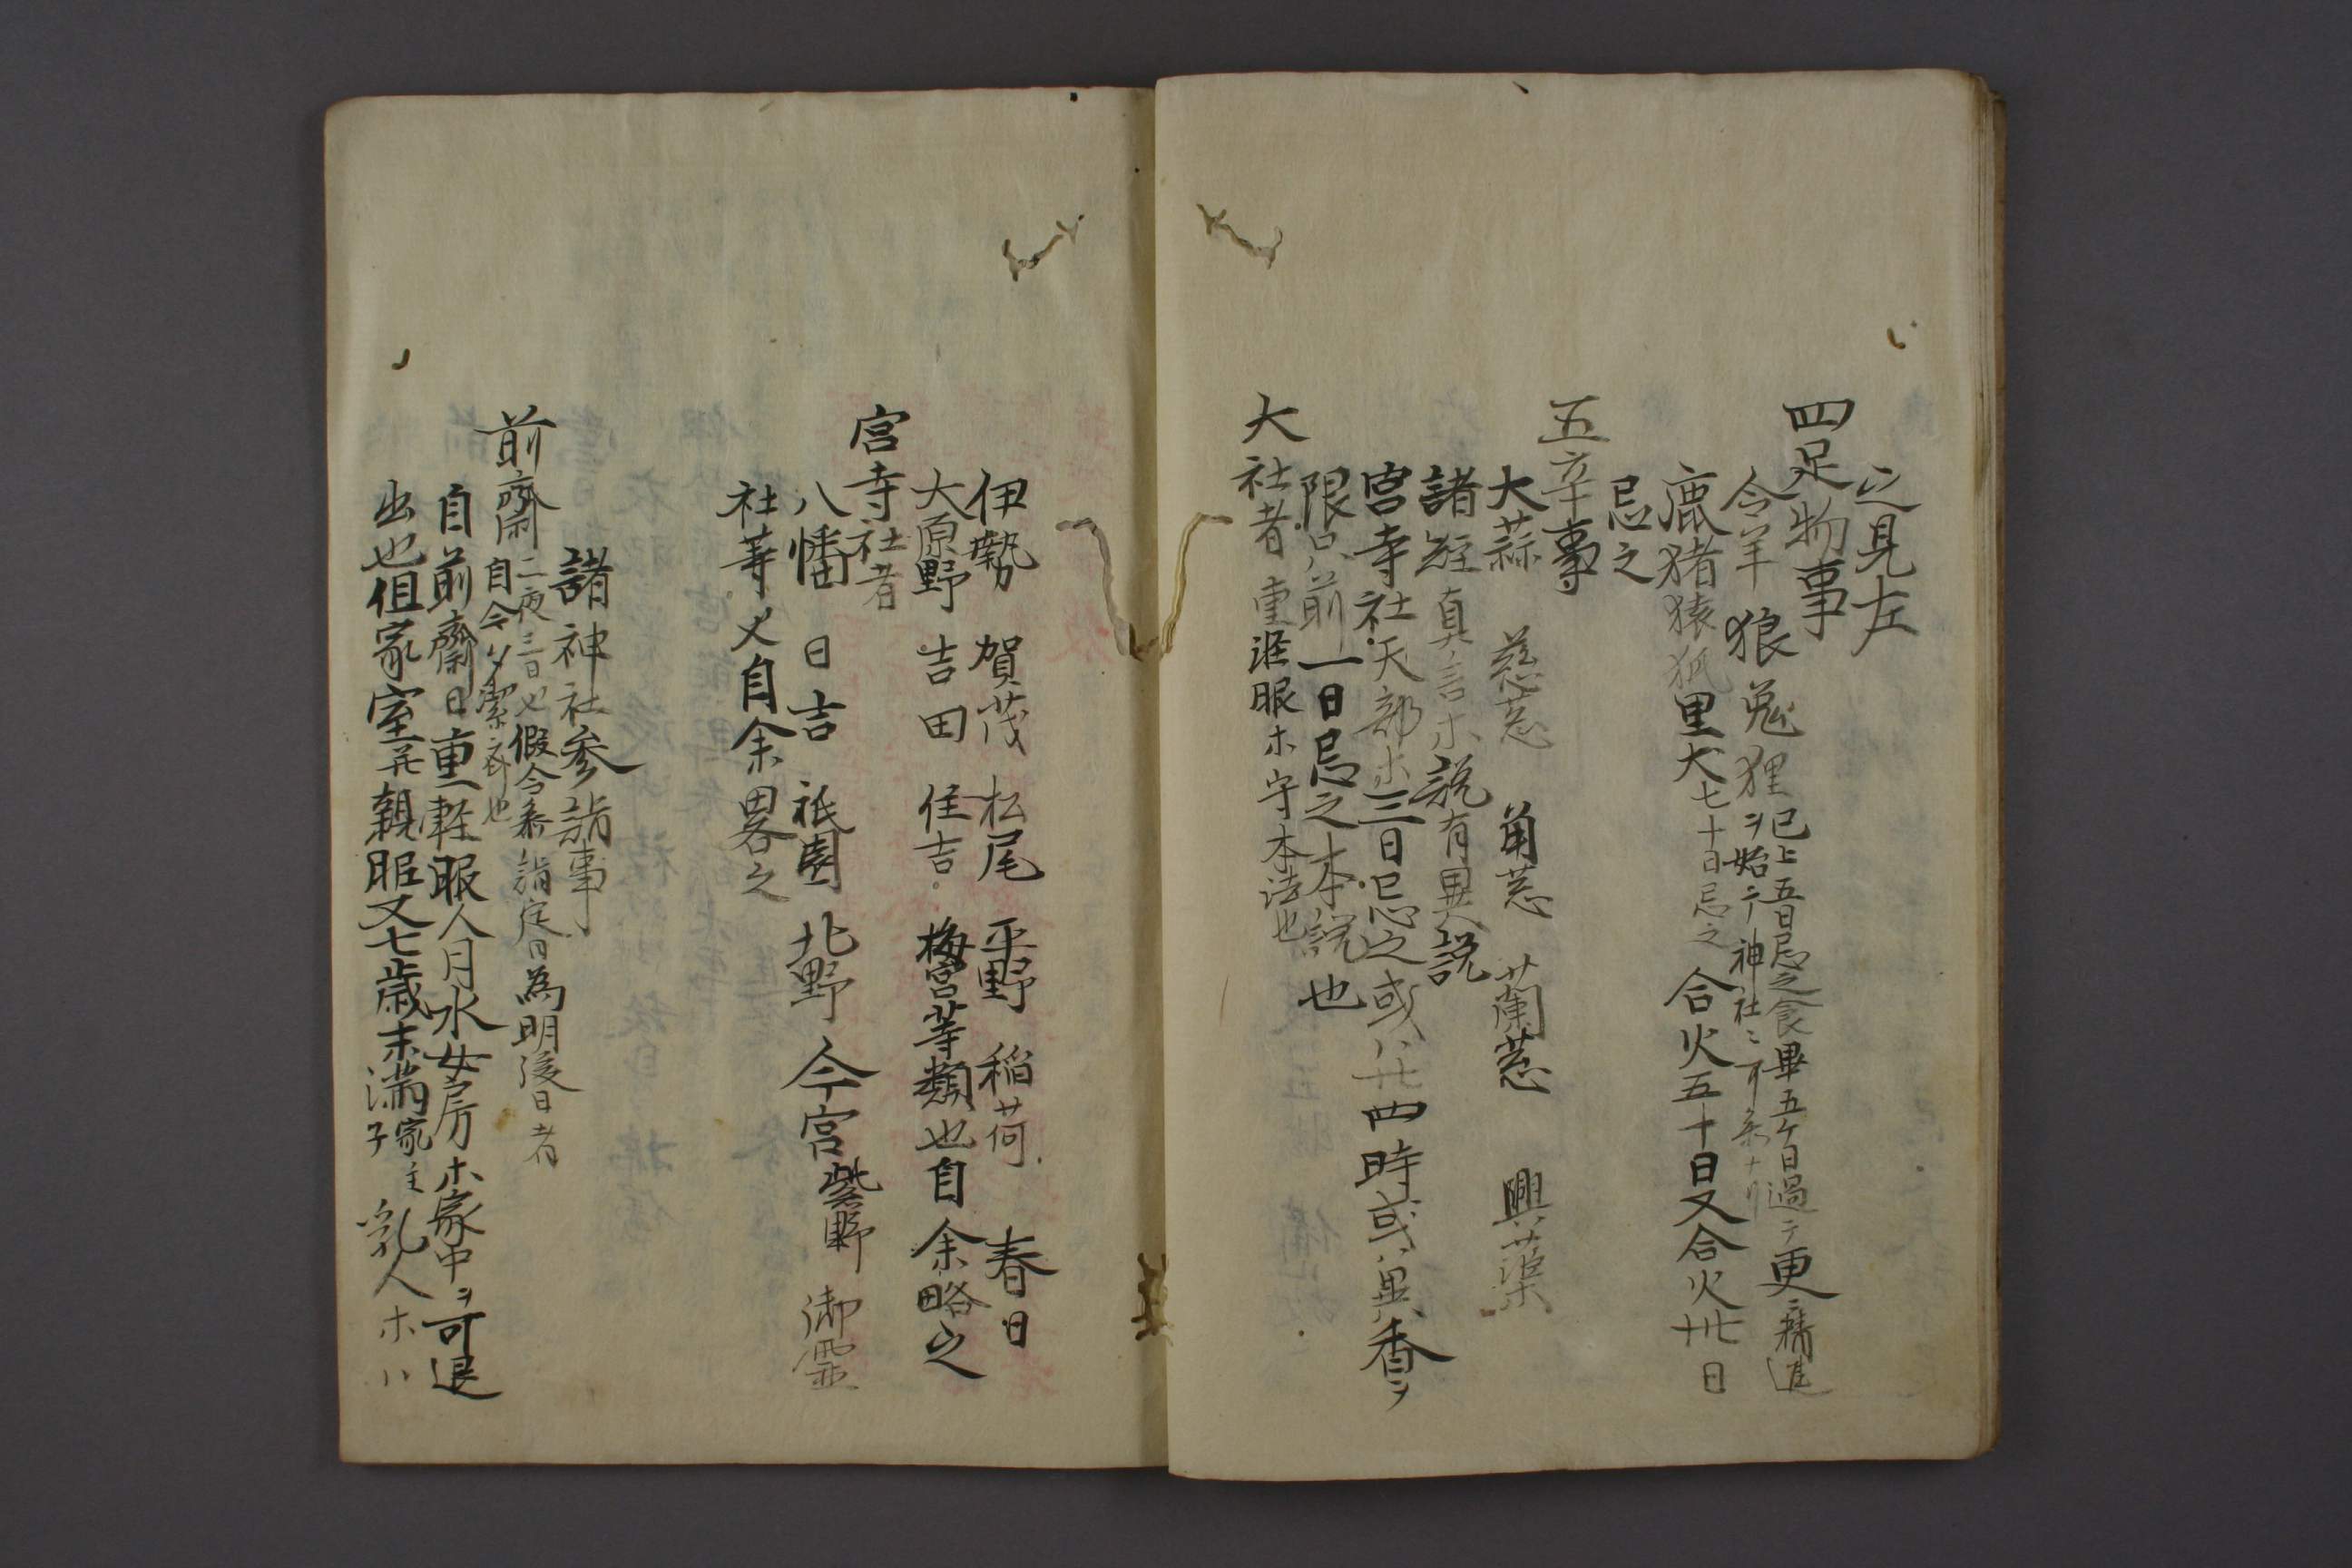 之見左
四足物事
令羊 狼 兎 狸 已上五日忌之食畢五ケ日過テ更ニ精進
ヲ始テ神社ニ可参ナリ
鹿猪猿狐里犬七十日忌之 合火五十日又合火卅七日
忌之
五辛事
大蒜 慈葱 角葱 蘭葱 興蕖
諸経真言ホ説有異説
宮寺社天部ホ三日忌之或ハ廿四時或ハ異香ヲ
限只前一日忌之本説也
大社者重服ホ守本法也
伊勢 賀茂 松尾 平野 稲荷 春日
大原野 吉田 住吉 梅宮等類也自余略之
宮寺社者
八幡 日吉 祇園 北野 今宮紫野 御霊
社等又自余畧之
諸神社参詣事
前齋二夜三日也假令参詣定日為明後日者
自今夕潔斎也
自前齋日重軽服人月水女房ホ家中ヲ可退
出也但家室并親服又七歳未満家主子乳人ホハ